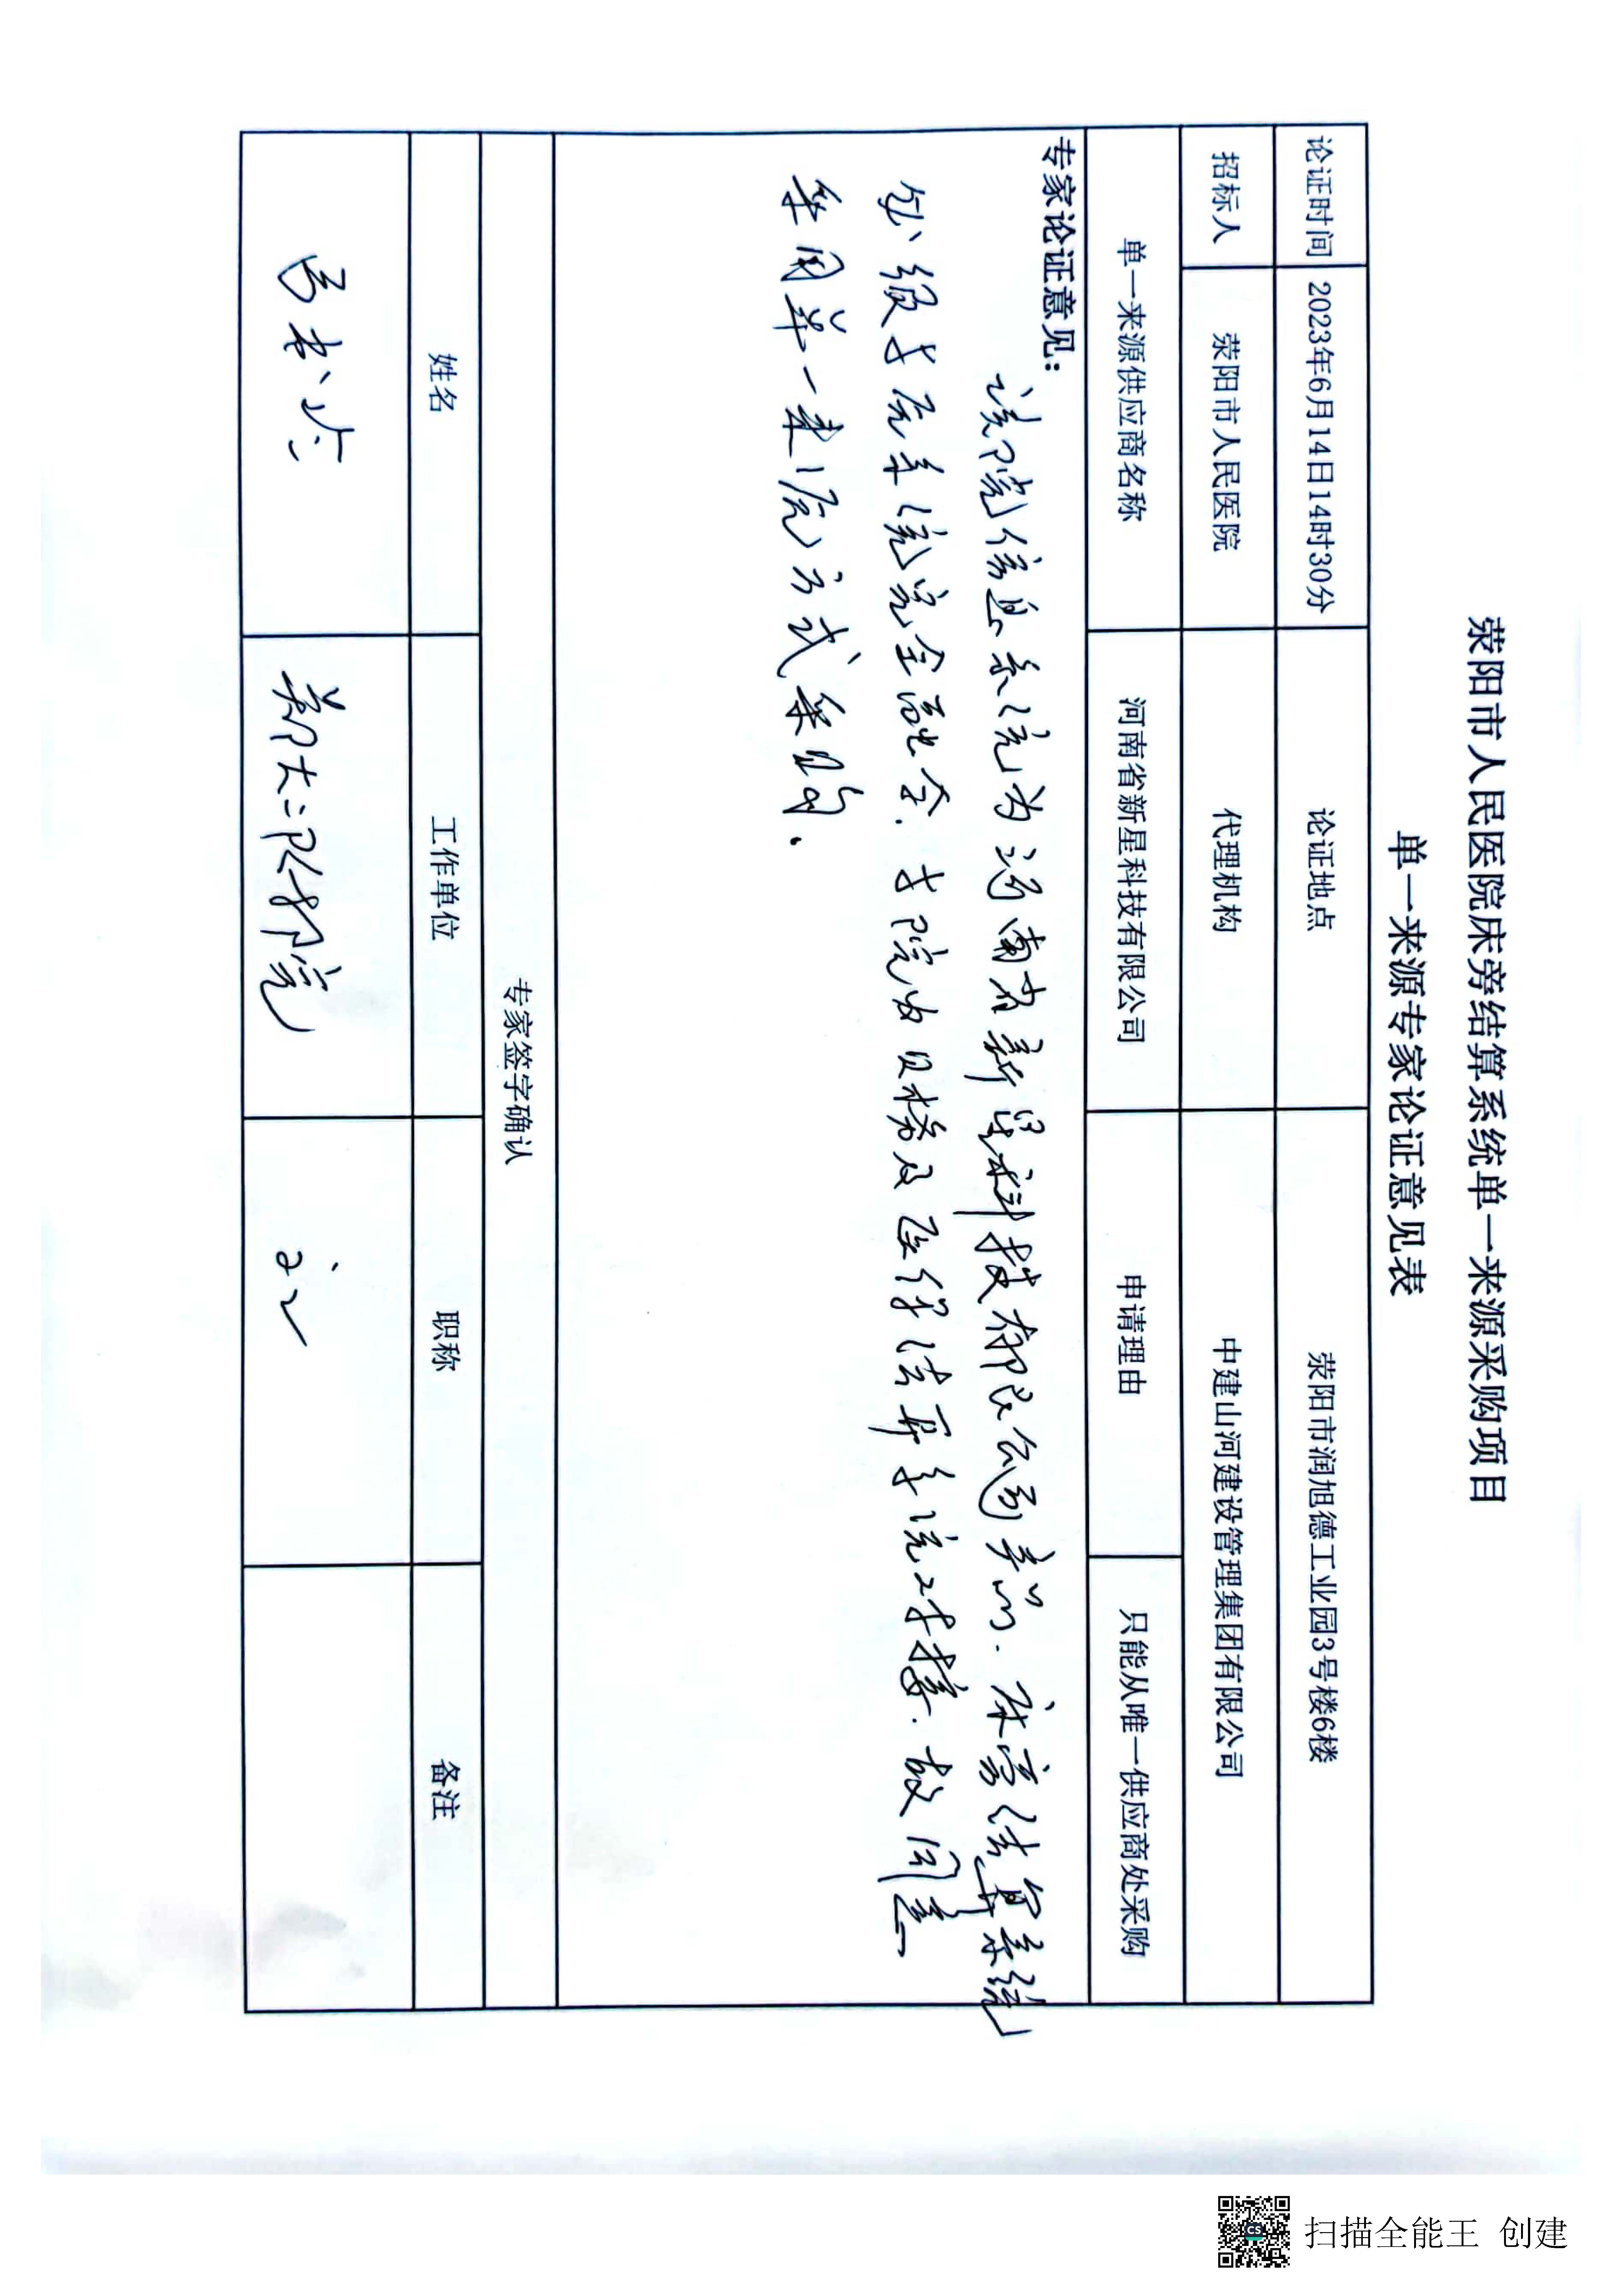 荥阳市人民医院床旁结算系统单一来源采购项目
单一来源专家论证意见表
论证时间 2023年6月14日14时30分 论证地点 荥阳市润旭德工业园3号楼6楼
招标人 荥阳市人民医院 代理机构 中建山河建设管理集团有限公司
单一来源供应商名称 河南省新星科技有限公司 申请理由 只能从唯一供应商处采购
专家论证意见：
该院信息系统为河南省新星科技有限公司承的.床旁结算系统
必须与原系统完全融合.与院内财务及医保结算系统对接.故同意
采用单一来源方式采购.
专家签字确认
姓名 工作单位 职称 备注
郑大二附院
扫描全能王 创建